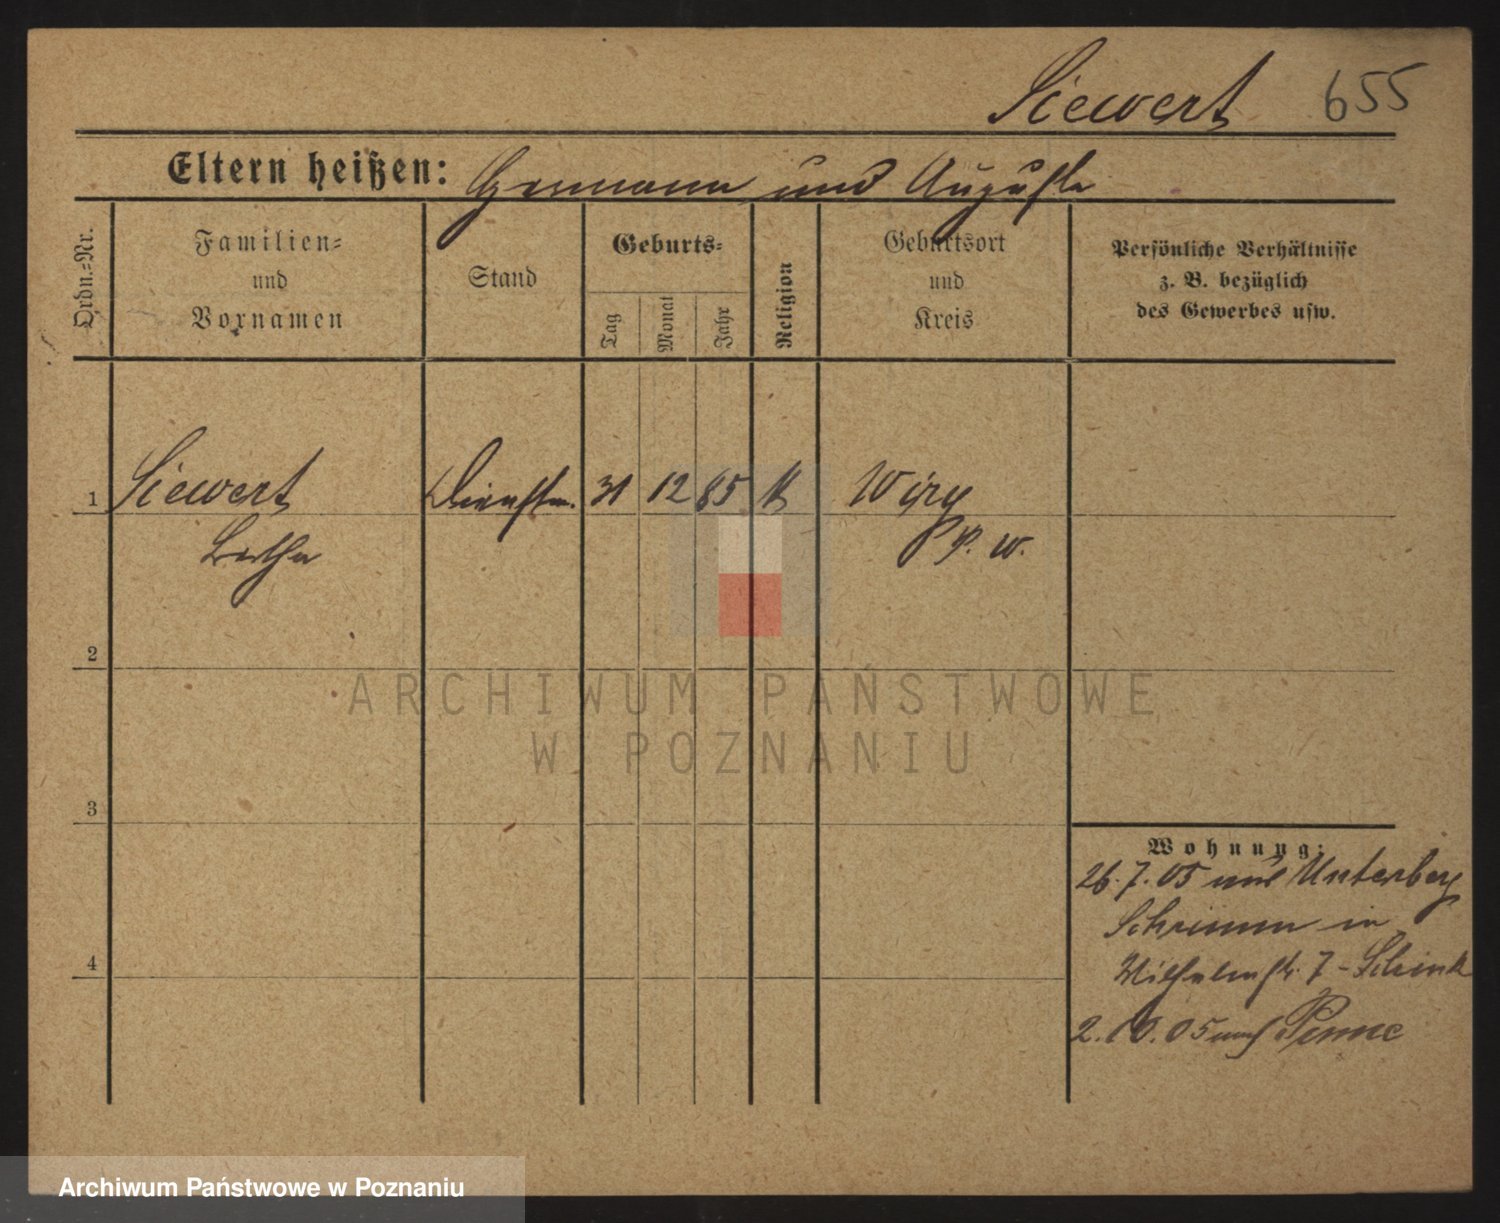 Siewert 655
Eltern heißen: Hermann und Auguste
Ordn.=Nr.
Familien=
und
Vornamen
Stand
Geburts=
Tag
Monat
Jahr
Religion
Geburtsort
und
Kreis
Persönliche Verhältnisse
z. B. bezüglich
des Gewerbes usw.
1 Siewert Dienstm. 31 12 85 k Wiry
Bertha P. W.
2
3
4
Wohnung:
26. 7. 05 aus Unterberg
Schrimm in
Wilhelmstr. 7 - Schenk
2. 10. 05 nach Pinne
ARCHIWUM PAŃSTWOWE
W POZNANIU
Archiwum Państwowe w Poznaniu